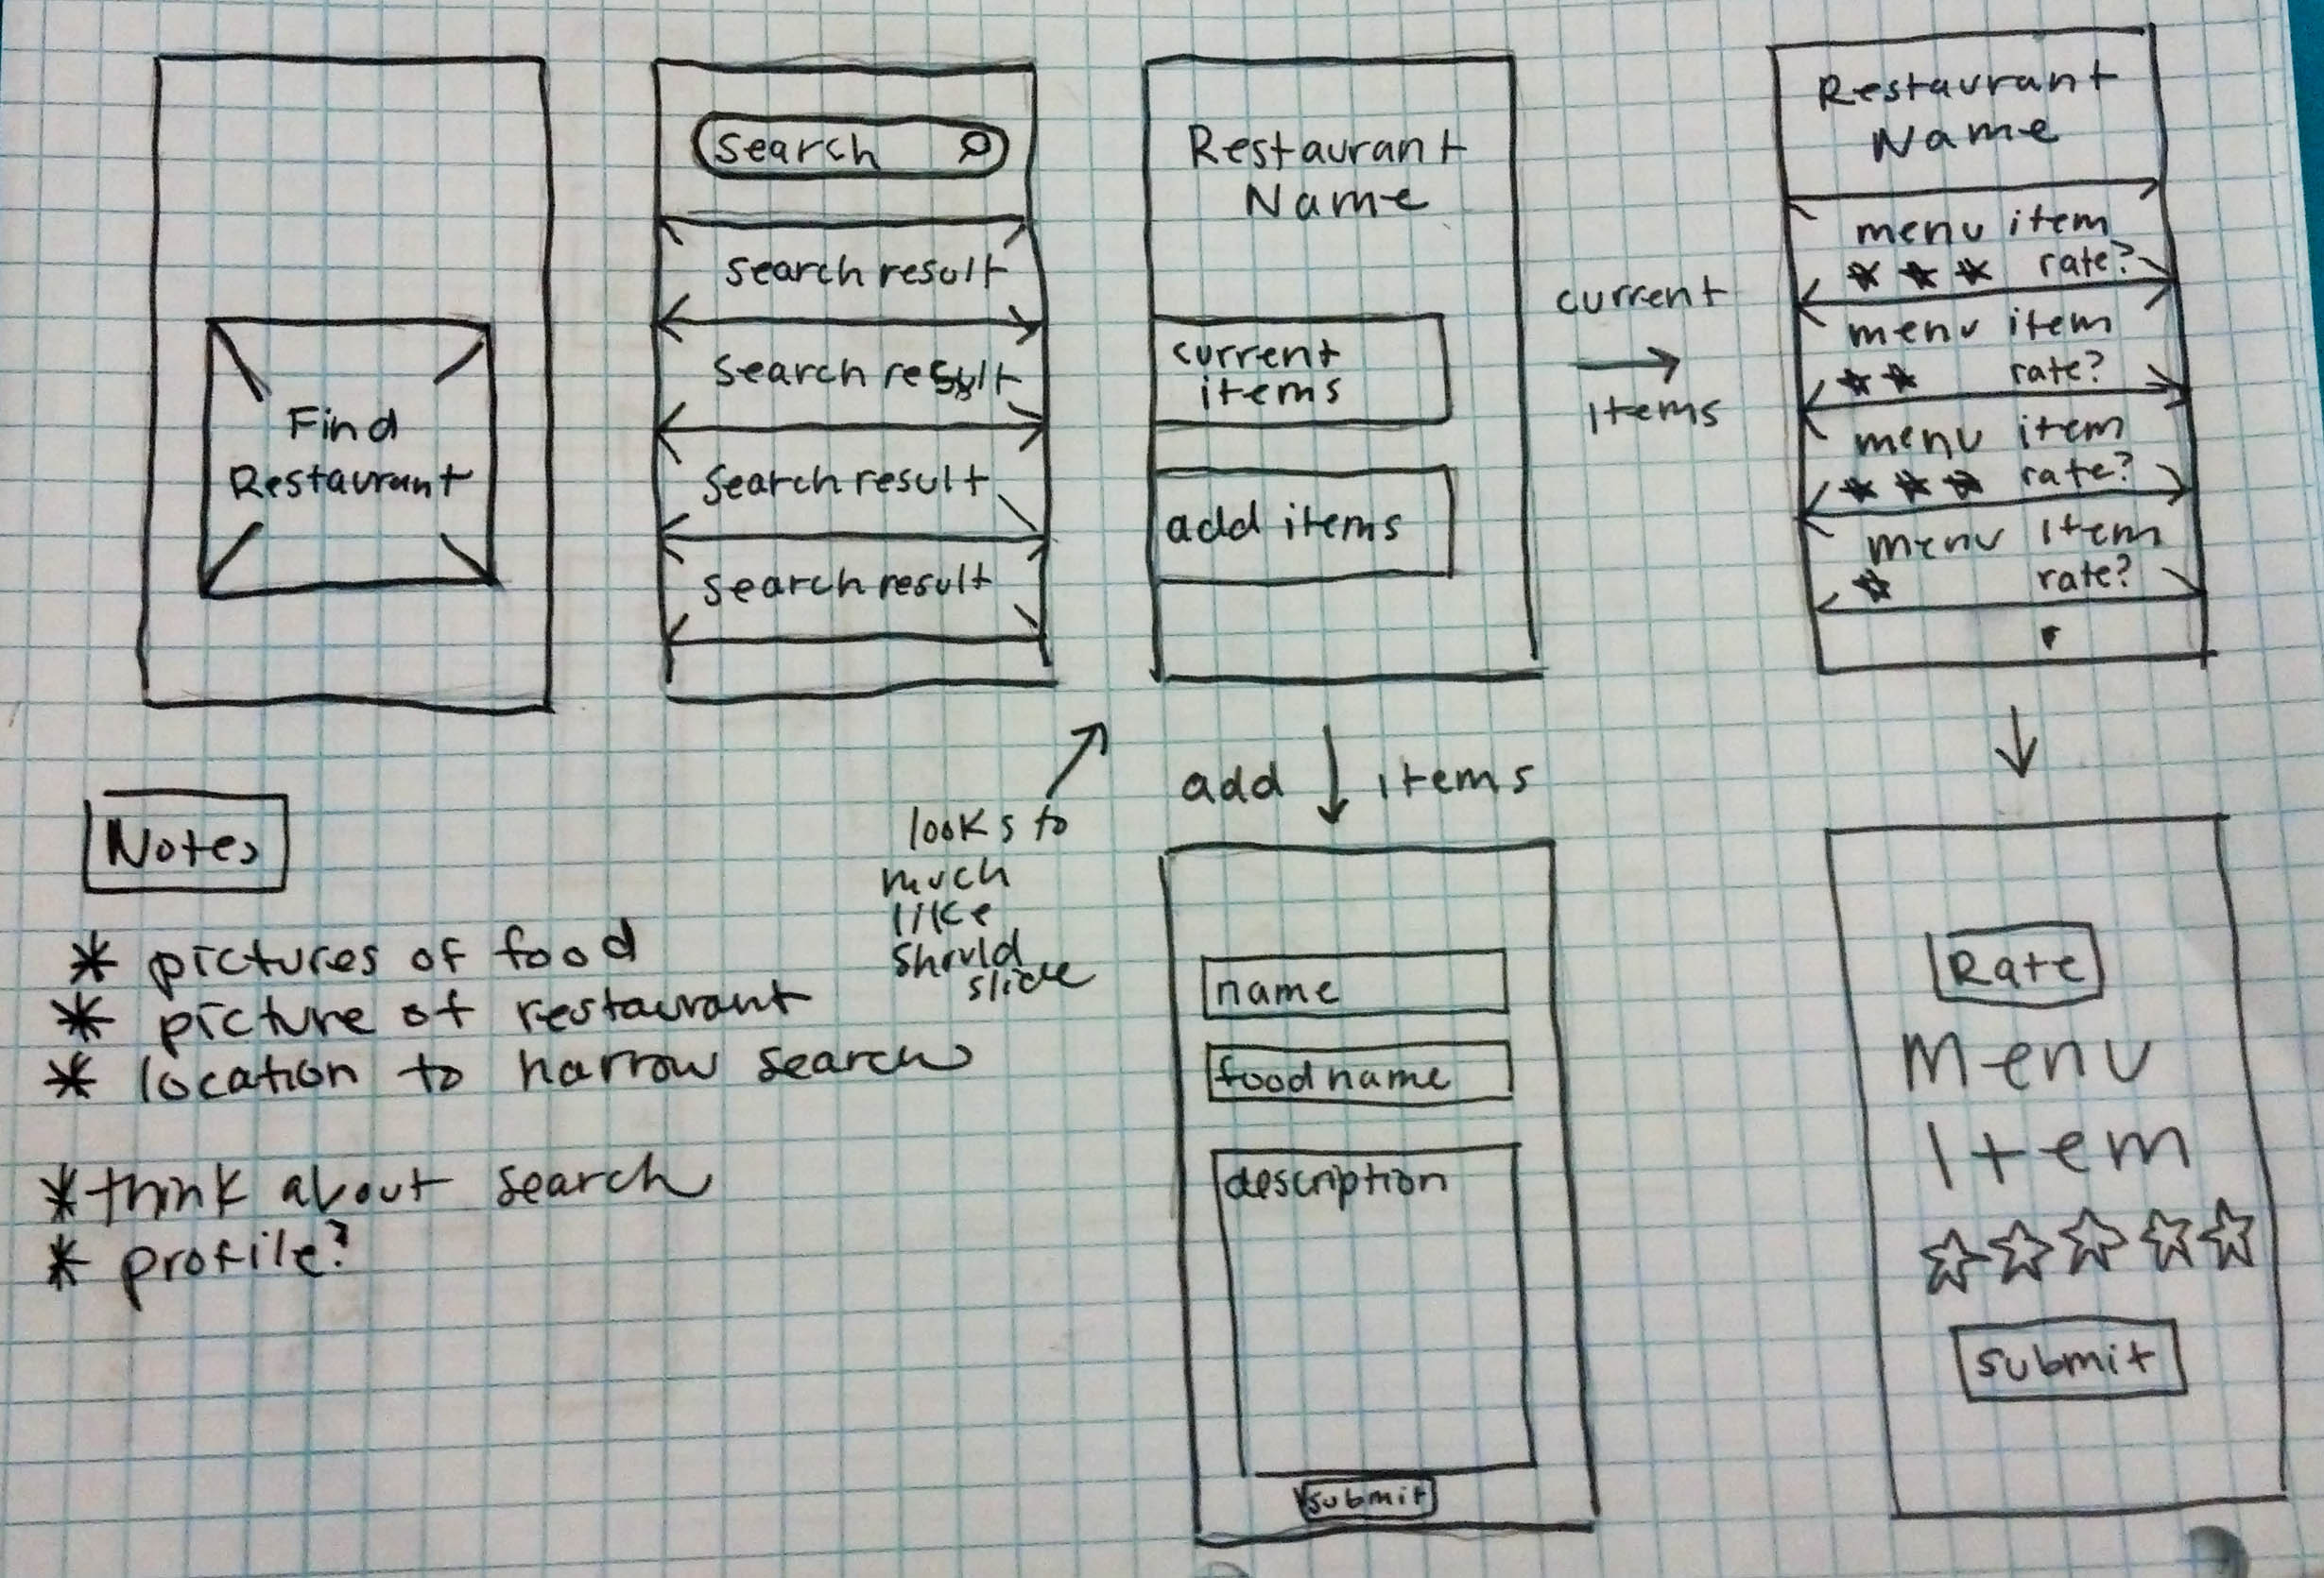 Find
Restaurant
search
search result
search result
search result
search result
Restaurant
Name
current
items
add items
current
items
Restaurant
Name
menu item
rate?
menu item
rate?
menu item
rate?
menu item
rate?
looks to
much
like
should
slide
add items
name
food name
description
submit
Rate
Menu
Item
submit
Notes
* pictures of food
* picture of restaurant
* location to narrow search
* think about search
* profile?